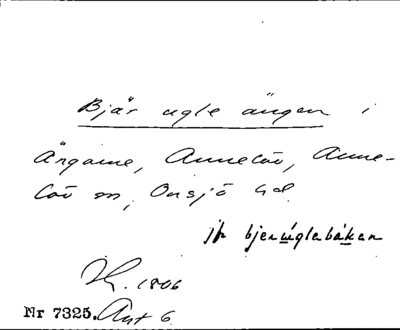 Bjär ugle ängen i
Ängarne, Annelöv, Anne-
löv sn, Onsjö hd.
jfr bjerúglebakan
1806
Nr 7325. Ant 6